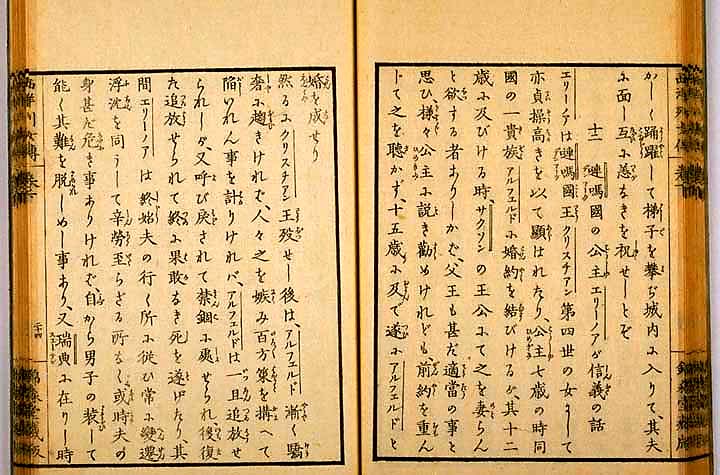 かしく踊躍して梯子を攀ぢ城内に入りて、其夫
に面し互に恙なきを祝せしとぞ
十二 嗹嗎國の公主エリーノアが信義の話
エリーノアは嗹嗎國王クリスチアン第四世の女にして
亦貞操高きを以て顕はれたり、公主七歳の時同
國の一貴族アルフェルドに婚約を結びけるが、其十二
歳に及びける時、サクソンの王公にて之を妻らん
と欲する者ありしかば、父王も甚だ適當の事と
思ひ様々公主に説き勧めけれども前約を重ん
じて之を聴かず、十五歳に及で遂にアルフェルドと
婚を成せり
然るにクリスチアン王歿せし後は、アルフェルド漸く驕
奢に趨きければ、人々之を嫉み百方策を搆へて
陥いれん事を計りければ、アルフェルドは一旦追放せ
られしが又呼び戻されて禁錮に處せられ後復
た追放せられて終に果敢なき死を遂げたり、其
間エリーノアは終始夫の行く所に従ひ常に變遷
浮沈を同うして辛勞至らざる所なく或時夫の
身甚だ危き事ありければ、自から男子の装して
能く其難を脱しめし事あり、又瑞典に在りし時